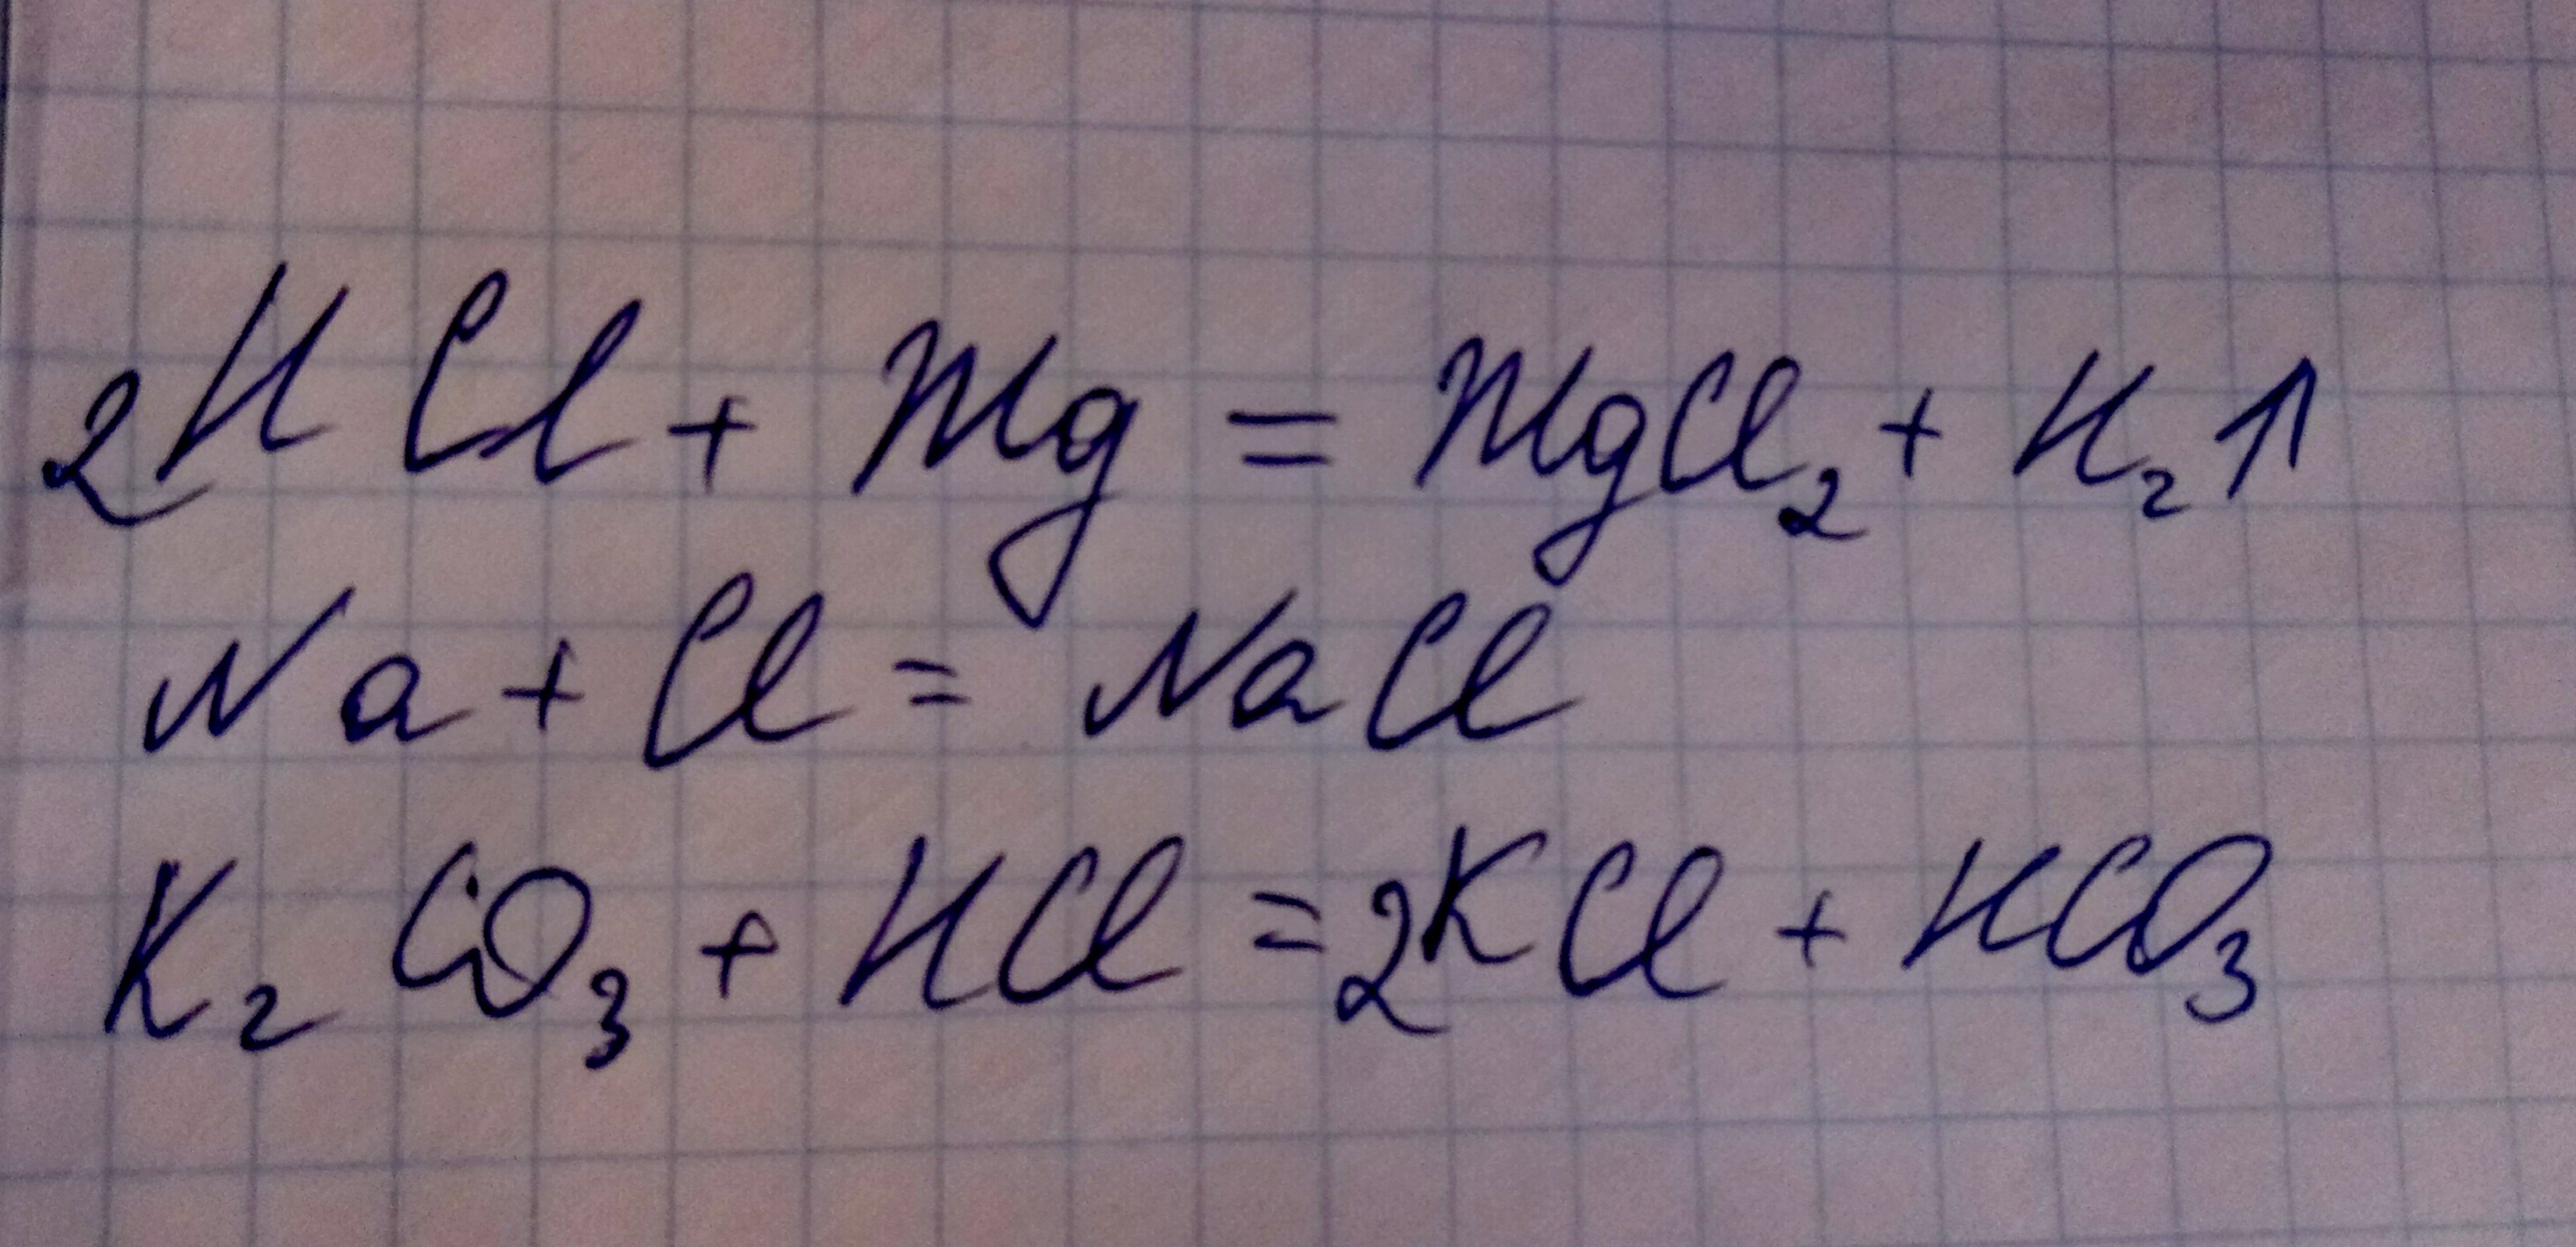 2HCl + Mg = MgCl₂ + H₂↑
Na + Cl = NaCl
K₂CO₃ + HCl = 2KCl + HCO₃